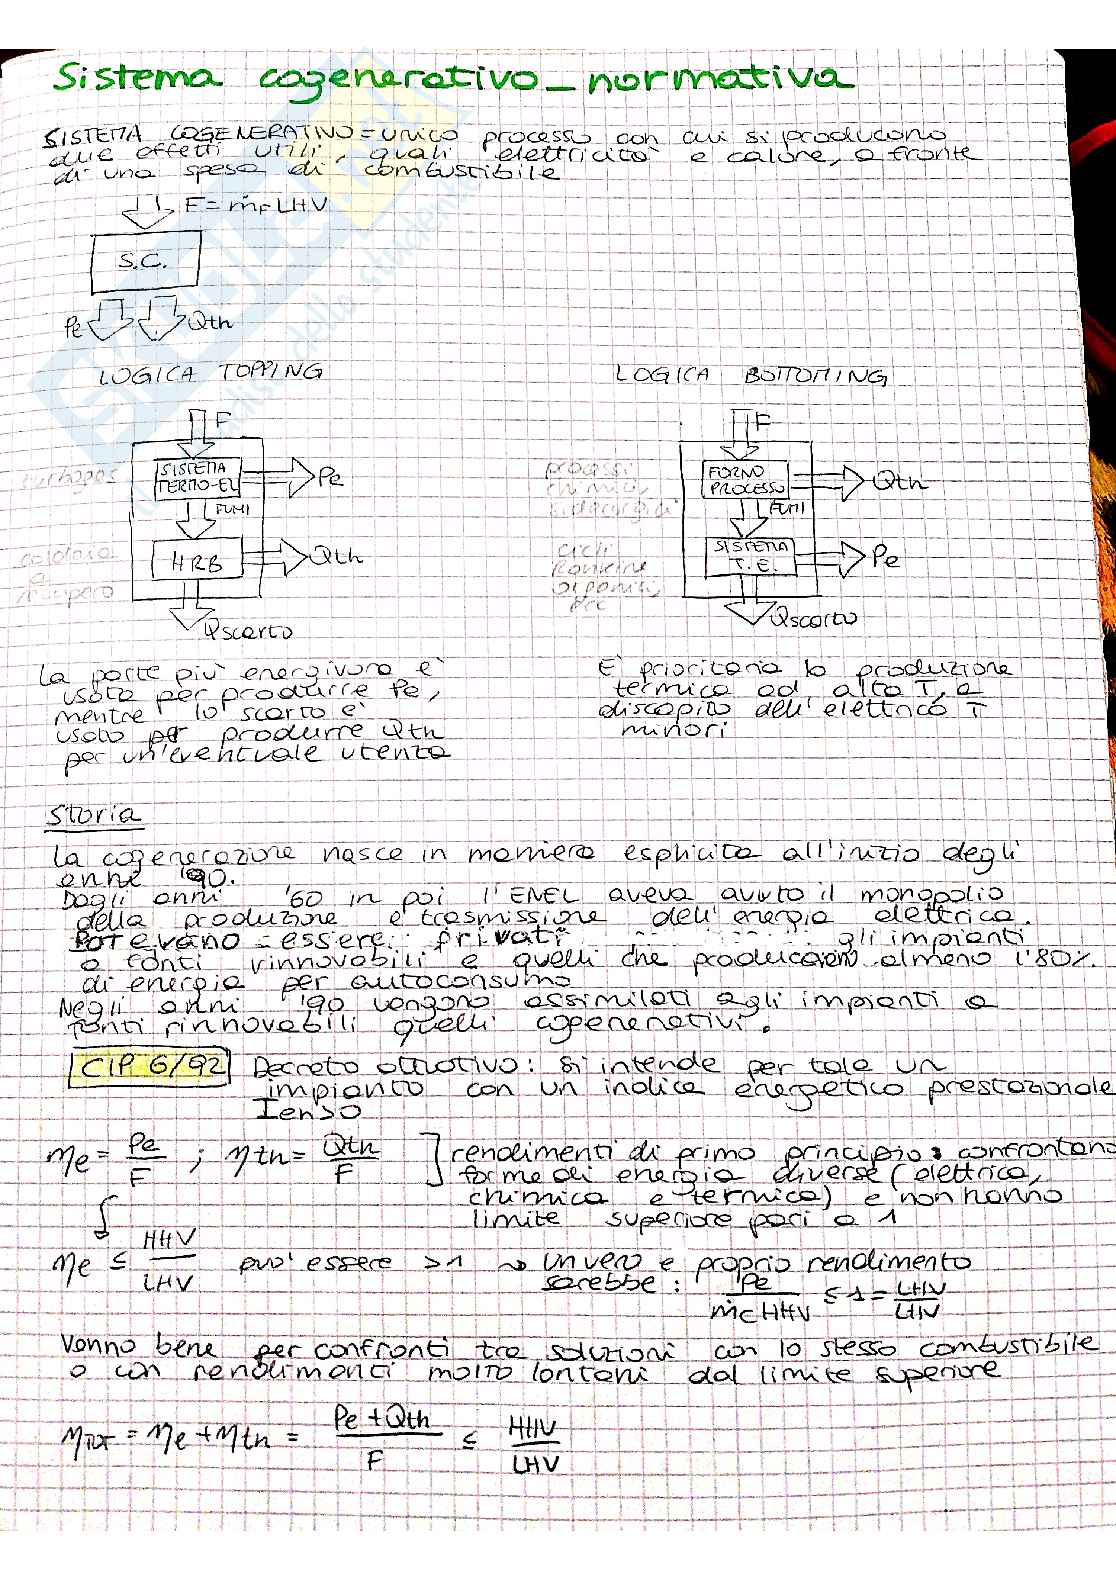 Sistema cogenerativo_normativa
SISTEMA COGENERATIVO = unico processo con cui si producono
due effetti utili, quali elettricità e calore, a fronte
di una spesa di combustibile
F = ṁF LHV
S.C.
Pe Qth
LOGICA TOPPING
F
turbogas
SISTEMA
TERMO-EL
Pe
FUMI
caldaia
a
recupero
HRB
Qth
Qscarto
La parte più energivora è
usata per produrre Pe,
mentre lo scarto è
usato per produrre Qth
per un'eventuale utenza
LOGICA BOTTOMING
F
processi
chimici,
siderurgia
FORNO
PROCESSO
Qth
FUMI
cicli
Rankine
SISTEMA
T.E.
Pe
Qscarto
È prioritaria la produzione
termica ad alta T, a
discapito dell'elettrico T
minori
Storia
La cogenerazione nasce in maniera esplicita all'inizio degli
anni '90.
Dagli anni '60 in poi l'ENEL aveva avuto il monopolio
della produzione e trasmissione dell'energia elettrica.
Potevano essere privati gli impianti
a fonti rinnovabili e quelli che producevano almeno l'80%
di energia per autoconsumo
Negli anni '90 vengono assimilati agli impianti a
fonti rinnovabili quelli cogenerativi.
CIP 6/92 Decreto attuativo: si intende per tale un
impianto con un indice energetico prestazionale
Ien>0
ηe = Pe/F ; ηth = Qth/F ] rendimenti di primo principio: confrontano
forme di energia diverse (elettrica,
chimica e termica) e non hanno
limite superiore pari a 1
ηe ≤ HHV/LHV può essere >1 → un vero e proprio rendimento
sarebbe: Pe/ṁc HHV ≤ 1 = LHV/LHV
Vanno bene per confronti tra soluzioni con lo stesso combustibile
o con rendimenti molto lontani dal limite superiore
ηTOT = ηe + ηth = Pe + Qth/F ≤ HHV/LHV